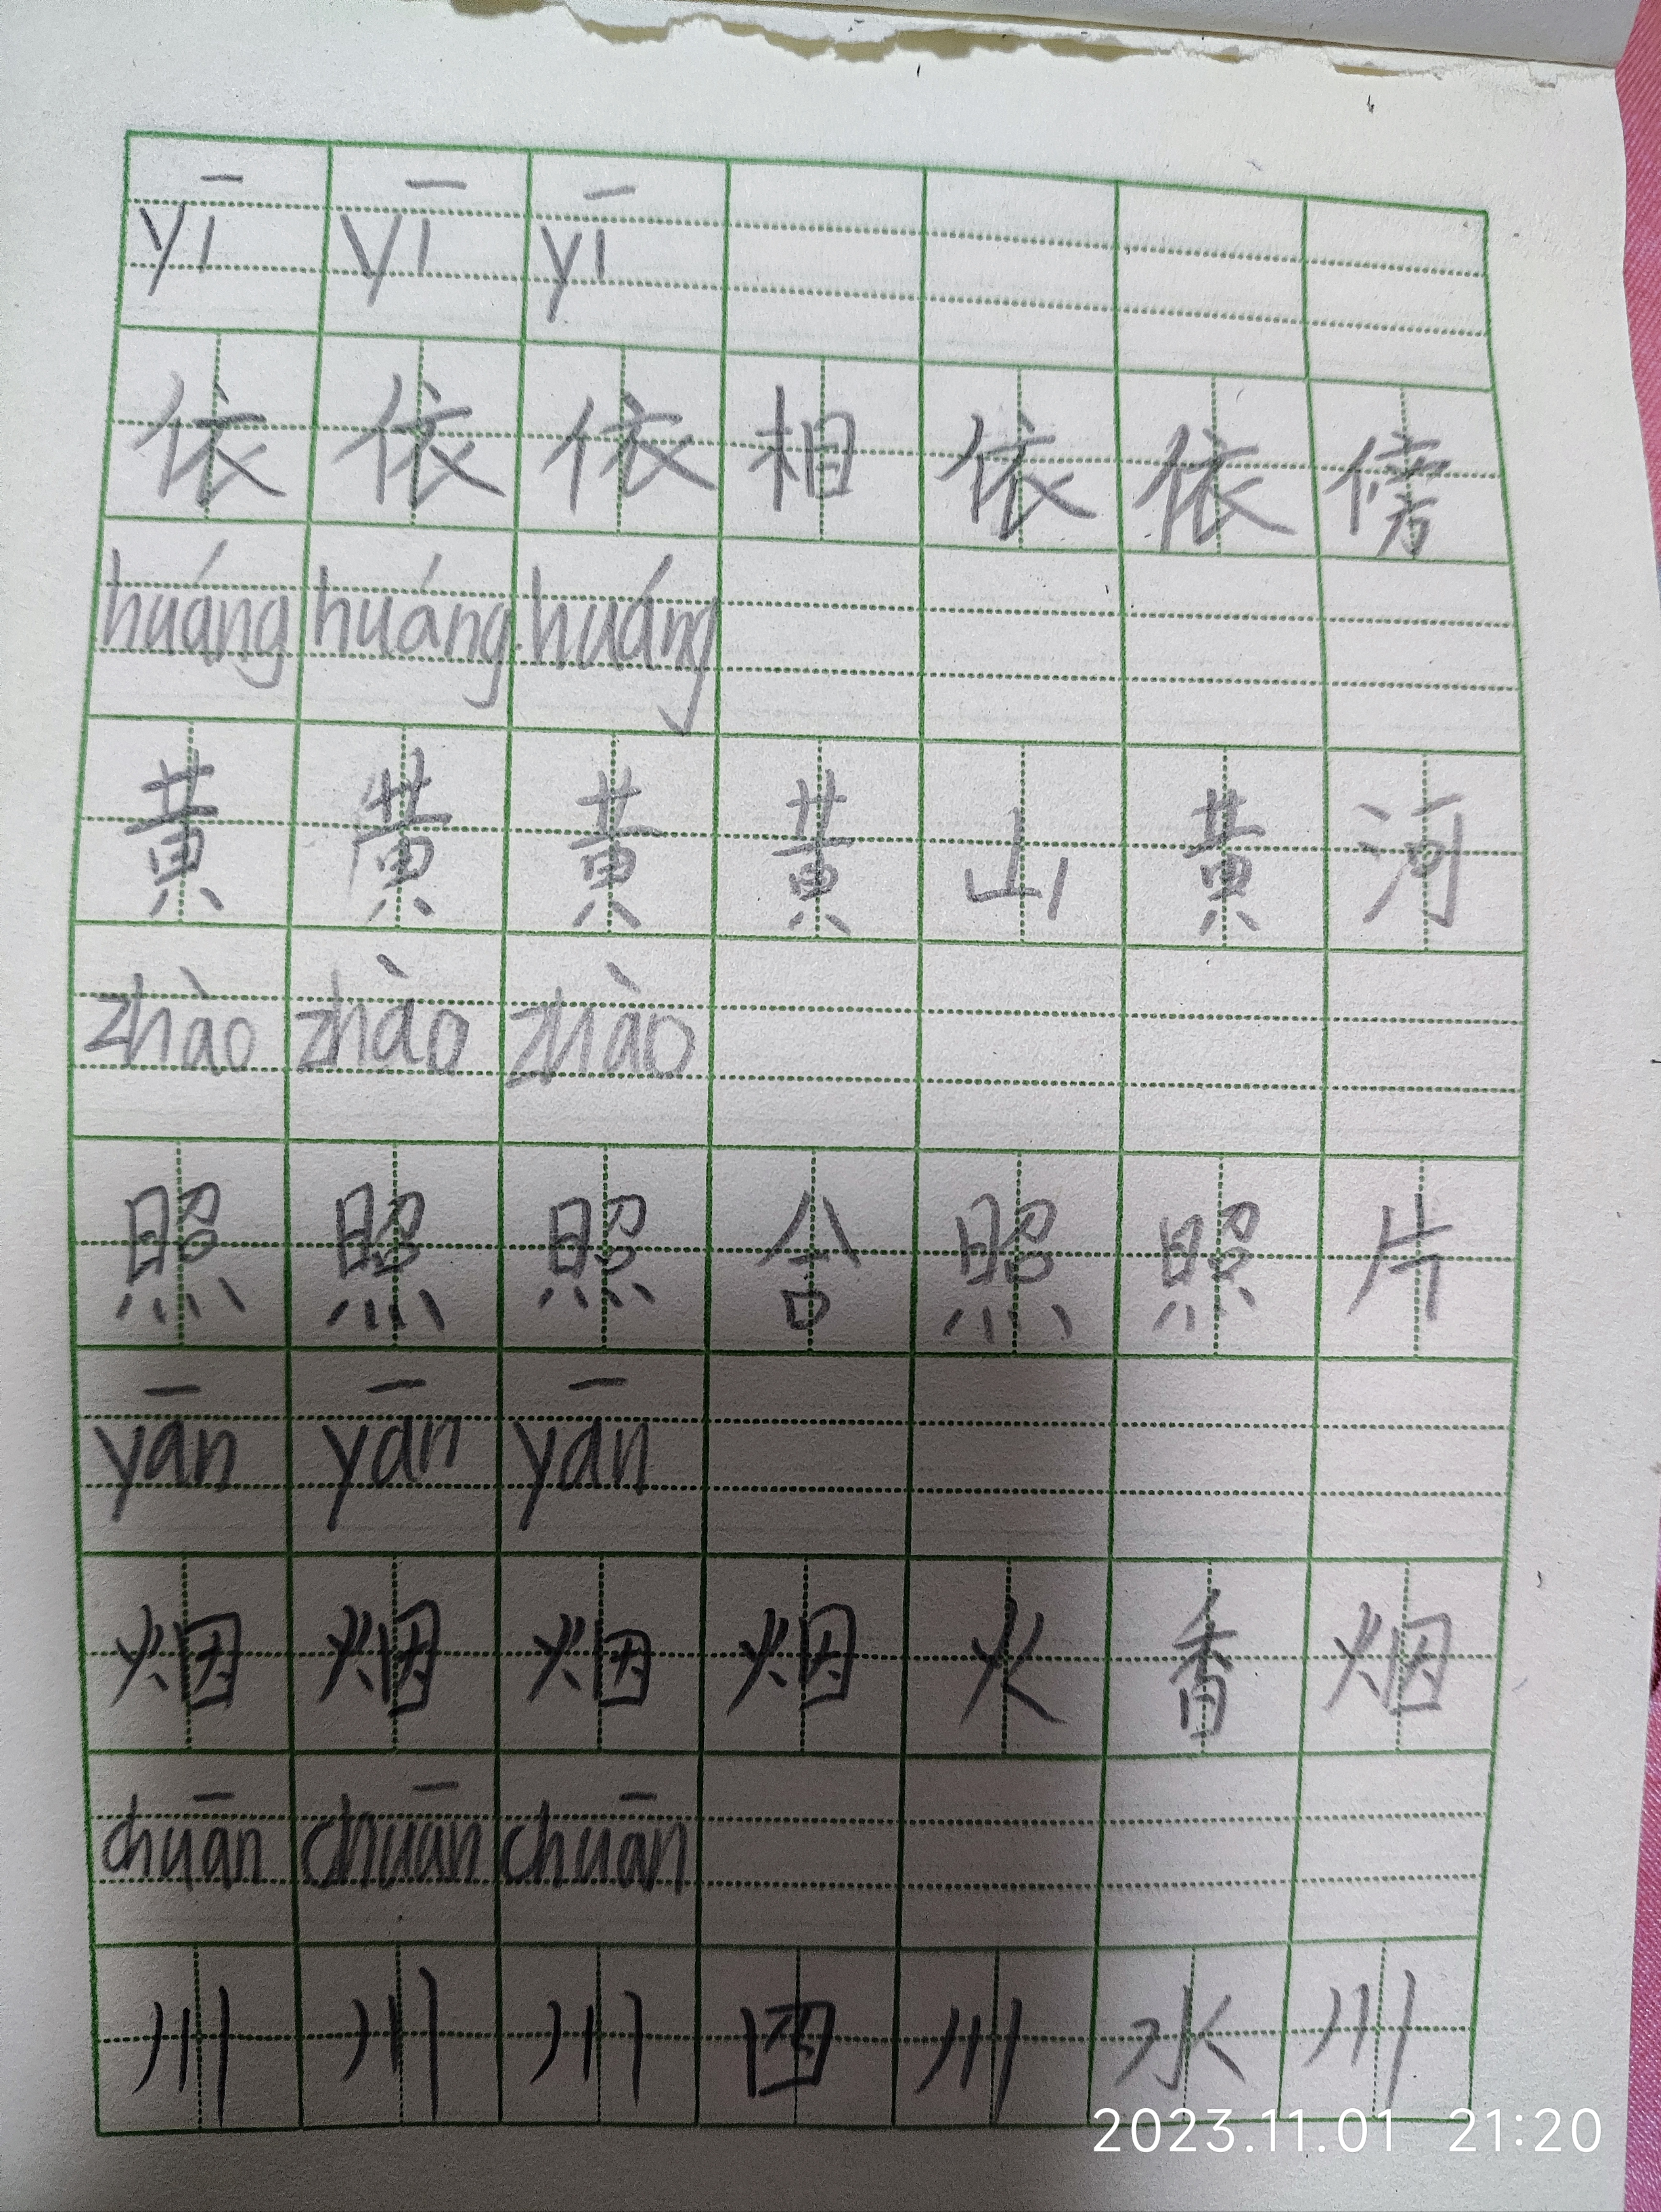 yī yī yī
依 依 依 相 依 依 傍
huáng huáng huáng
黄 黄 黄 黄 山 黄 河
zhào zhào zhào
照 照 照 合 照 照 片
yān yān yān
烟 烟 烟 烟 火 香 烟
chuān chuān chuān
川 川 川 四 川 水 川
2023.11.01 21:20